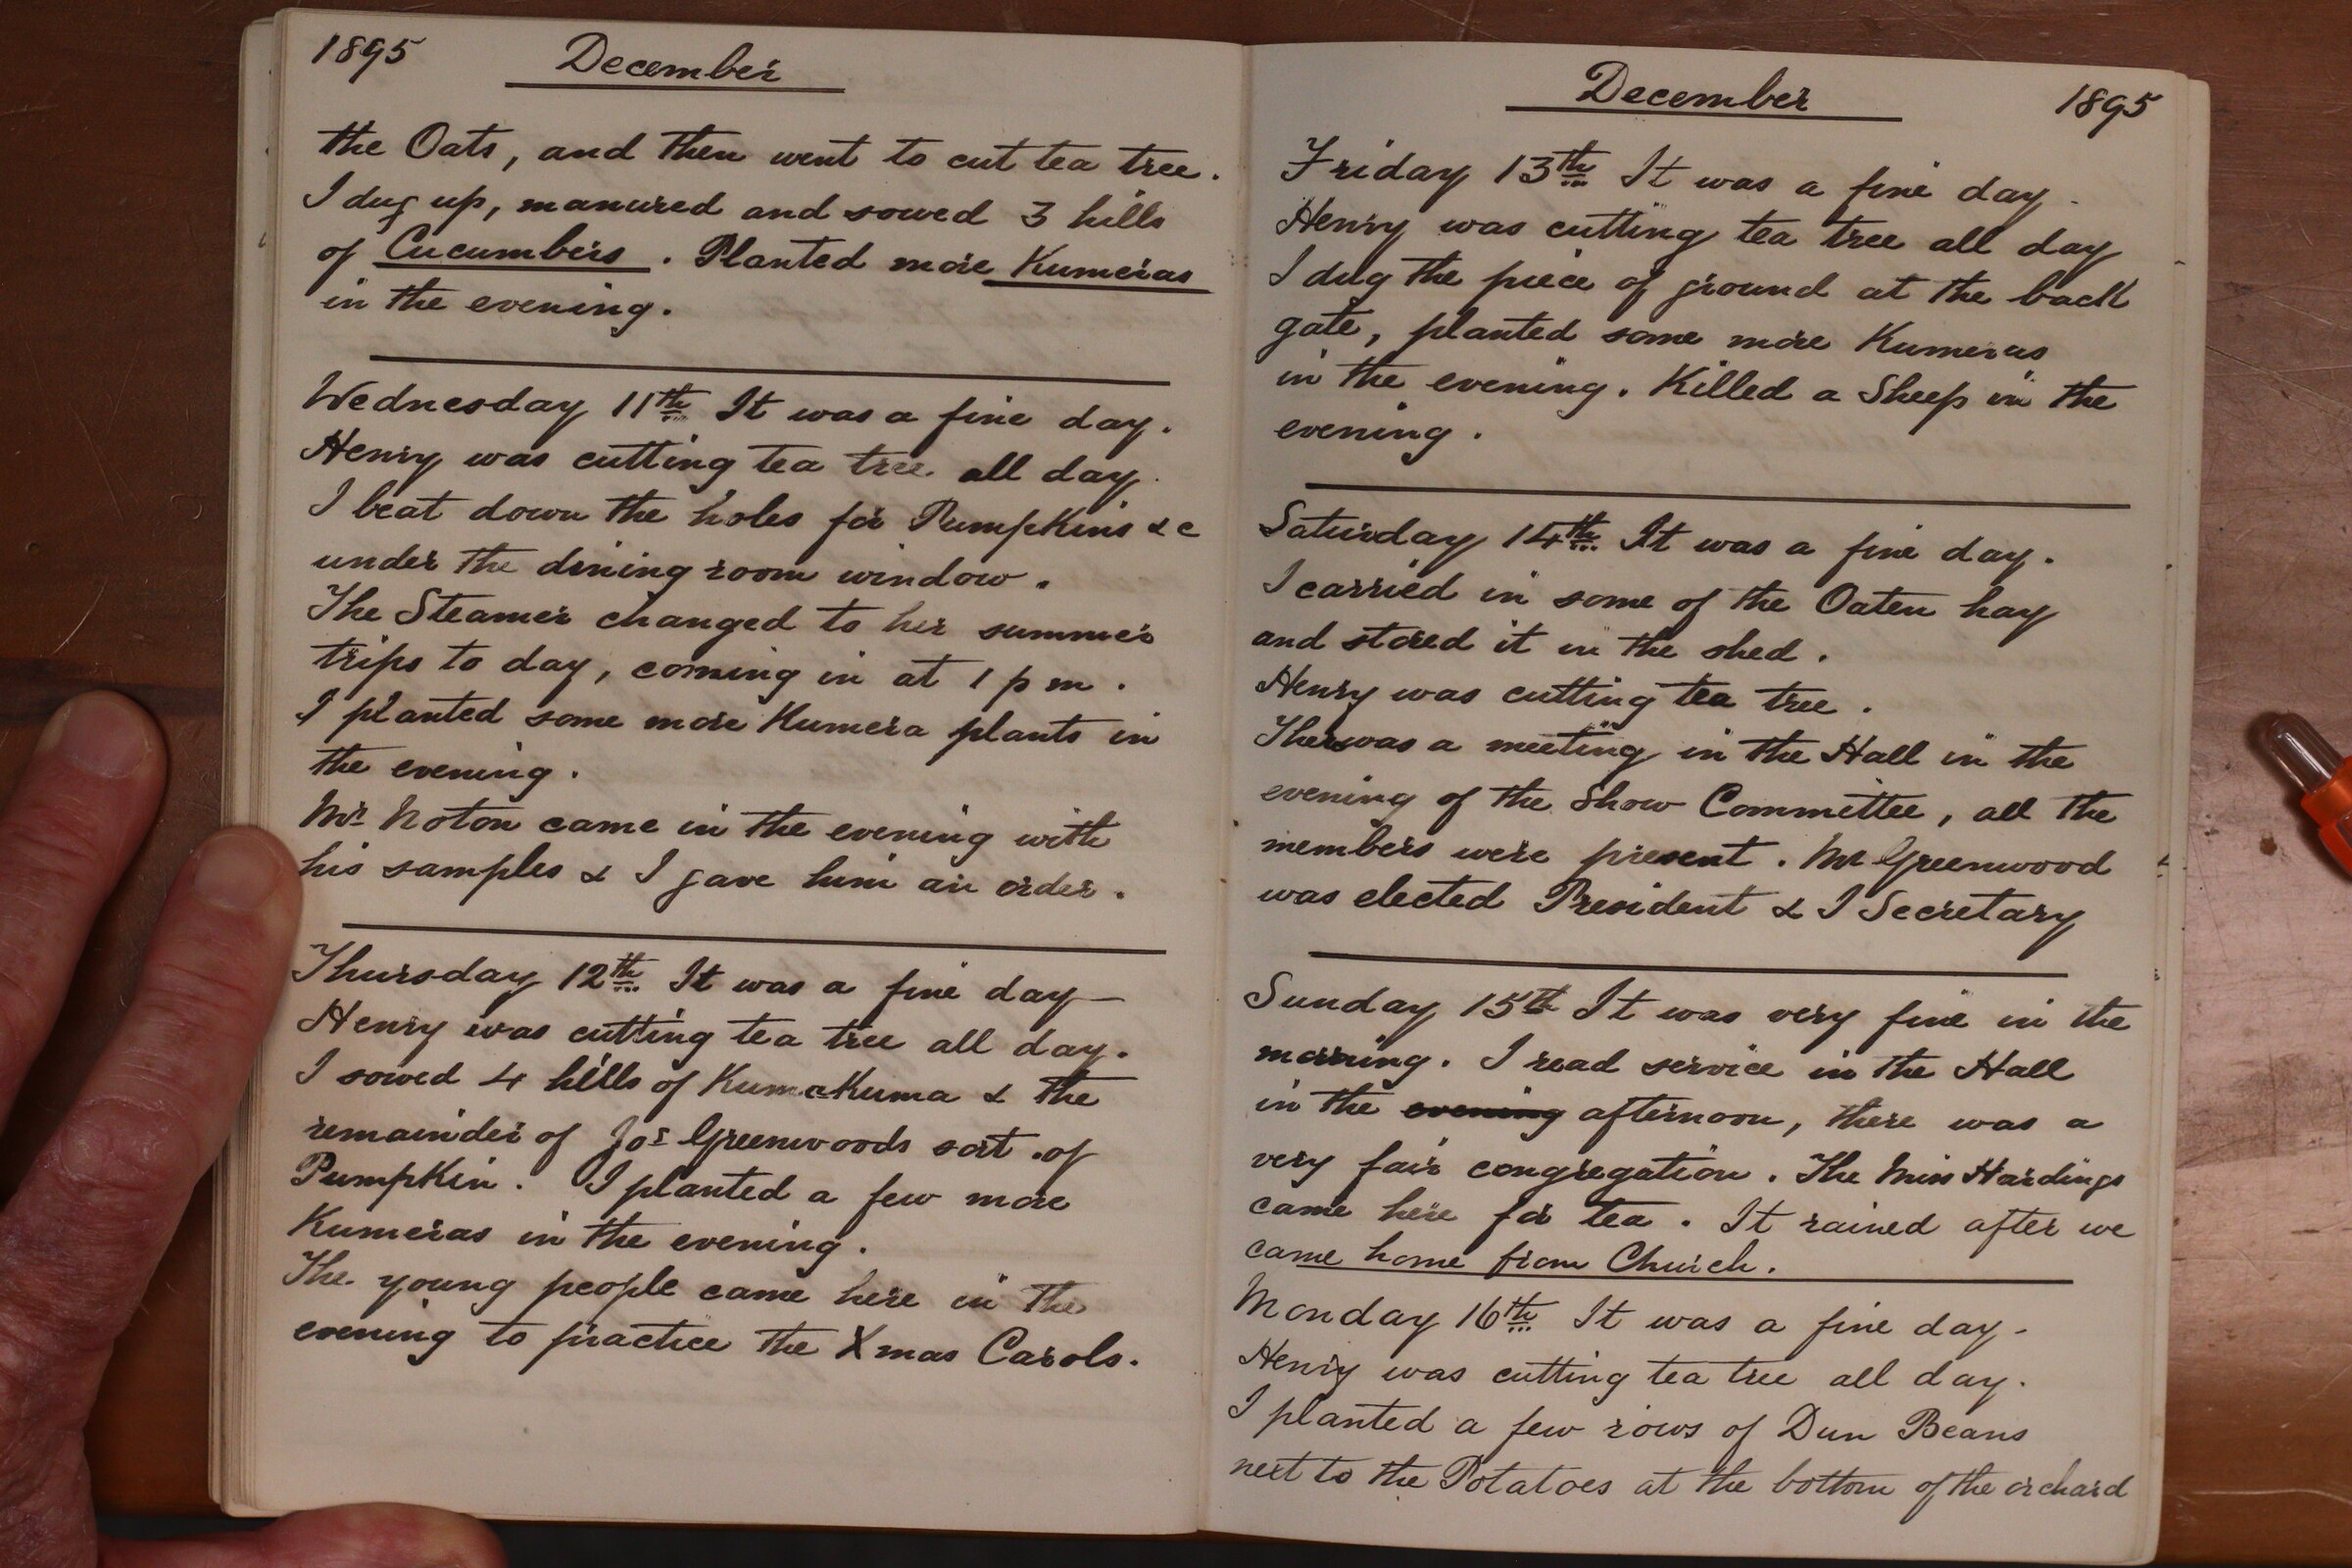 1895 December
the Oats, and then went to cut tea tree.
I dug up, manured and sowed 3 hills
of Cucumbers. Planted more Kumeras
in the evening.
Wednesday 11th It was a fine day.
Henry was cutting tea tree all day.
I beat down the holes for Pumpkins &c
under the dining room window.
The Steamer changed to her summer
trips to day, coming in at 1 p m.
I planted some more Kumera plants in
the evening.
Mr Noton came in the evening with
his samples & I gave him an order.
Thursday 12th It was a fine day—
Henry was cutting tea tree all day.
I sowed 4 hills of KumaKuma & the
remainder of Jos Greenwoods sort of
Pumpkin. I planted a few more
Kumeras in the evening.
The young people came here in the
evening to practice the Xmas Carols.
December 1895
Friday 13th It was a fine day.
Henry was cutting tea tree all day
I dug the piece of ground at the back
gate, planted some more Kumeras
in the evening. Killed a Sheep in the
evening.
Saturday 14th It was a fine day.
I carried in some of the Oaten hay
and stored it in the shed.
Henry was cutting tea tree.
There was a meeting in the Hall in the
evening of the Show Committee, all the
members were present. Mr Greenwood
was elected President & I Secretary
Sunday 15th It was very fine in the
morning. I read service in the Hall
in the evening afternoon, there was a
very fair congregation. The Miss Hardings
came here for tea. It rained after we
came home from Church.
Monday 16th It was a fine day.
Henry was cutting tea tree all day.
I planted a few rows of Dun Beans
next to the Potatoes at the bottom of the orchard